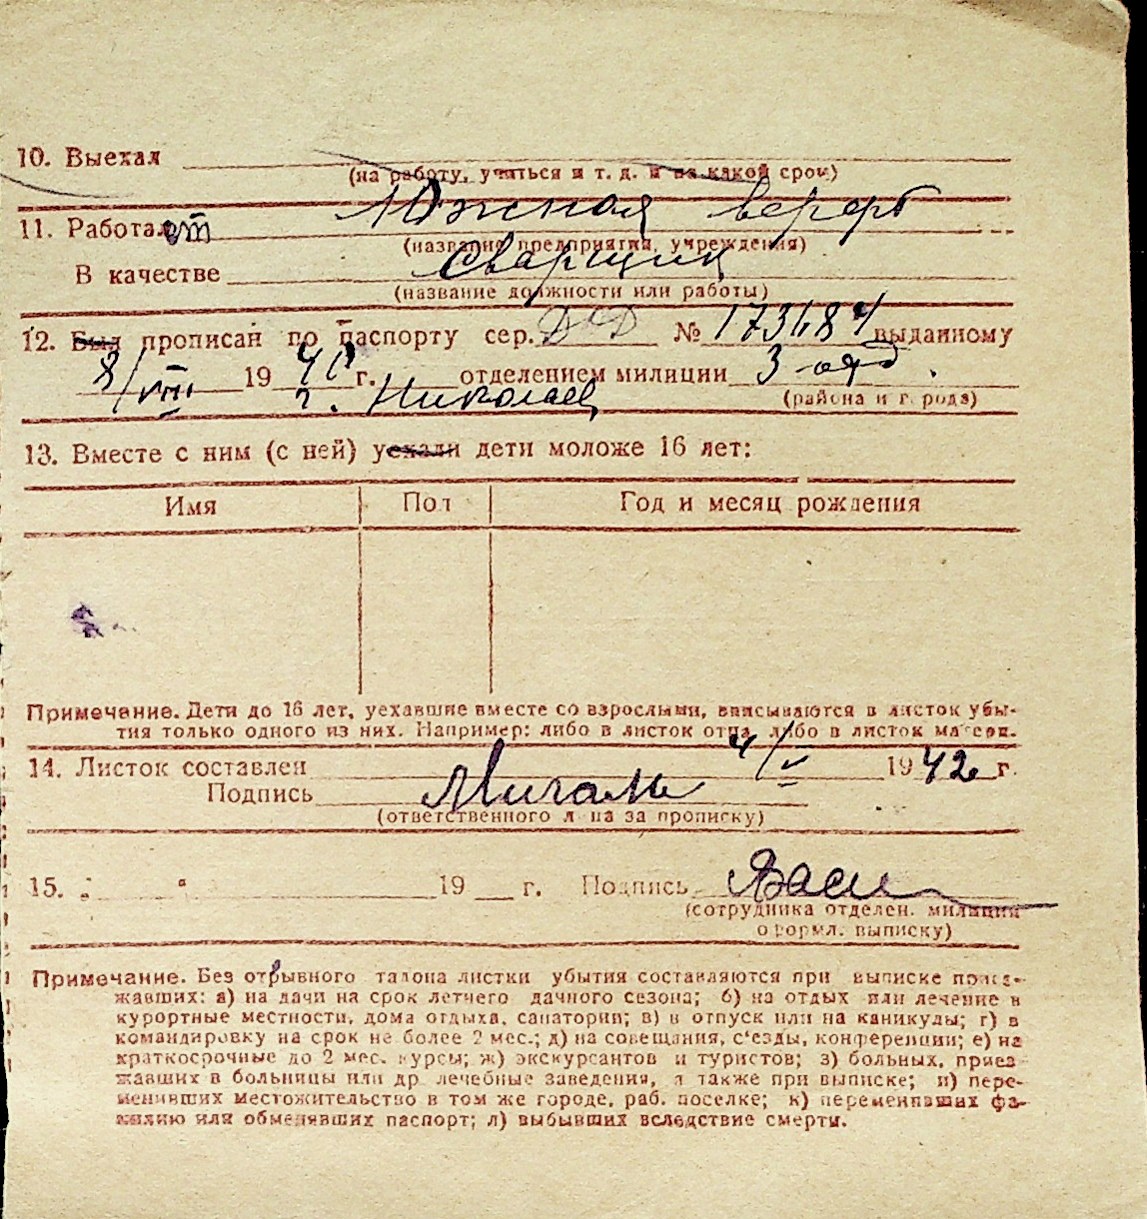 10. Выехал
(на работу, учиться и т. д. и на какой срок)
Южная верфь
11. Работает
(название предприятия, учреждения)
Сварщик
В качестве
(название должности или работы)
12. Был прописан по паспорту сер. № 173184 выданному
8/VIII 19 г. отделением милиции 3 отд.
г. Николаев
(района и города)
13. Вместе с ним (с ней) уехали дети моложе 16 лет:
Имя Пол Год и месяц рождения
Примечание. Дети до 16 лет, уехавшие вместе со взрослыми, вписываются в листок убы-
тия только одного из них. Например: либо в листок отца, либо в листок матери.
14. Листок составлен 4/V 1942 г.
Подпись
(ответственного лица за прописку)
15. " " 19 г. Подпись
(сотрудника отделен. милиции
оформл. выписку)
Примечание. Без отрывного талона листки убытия составляются при выписке приез-
жавших: а) на дачи на срок летнего дачного сезона; б) на отдых или лечение в
курортные местности, дома отдыха, санатории; в) в отпуск или на каникулы; г) в
командировку на срок не более 2 мес.; д) на совещания, с'езды, конференции; е) на
краткосрочные до 2 мес. курсы; ж) экскурсантов и туристов; з) больных, приез-
жавших в больницы или др. лечебные заведения, а также при выписке; и) пере-
менивших местожительство в том же городе, раб. поселке; к) переменивших фа-
милию или обменявших паспорт; л) выбывших вследствие смерти.